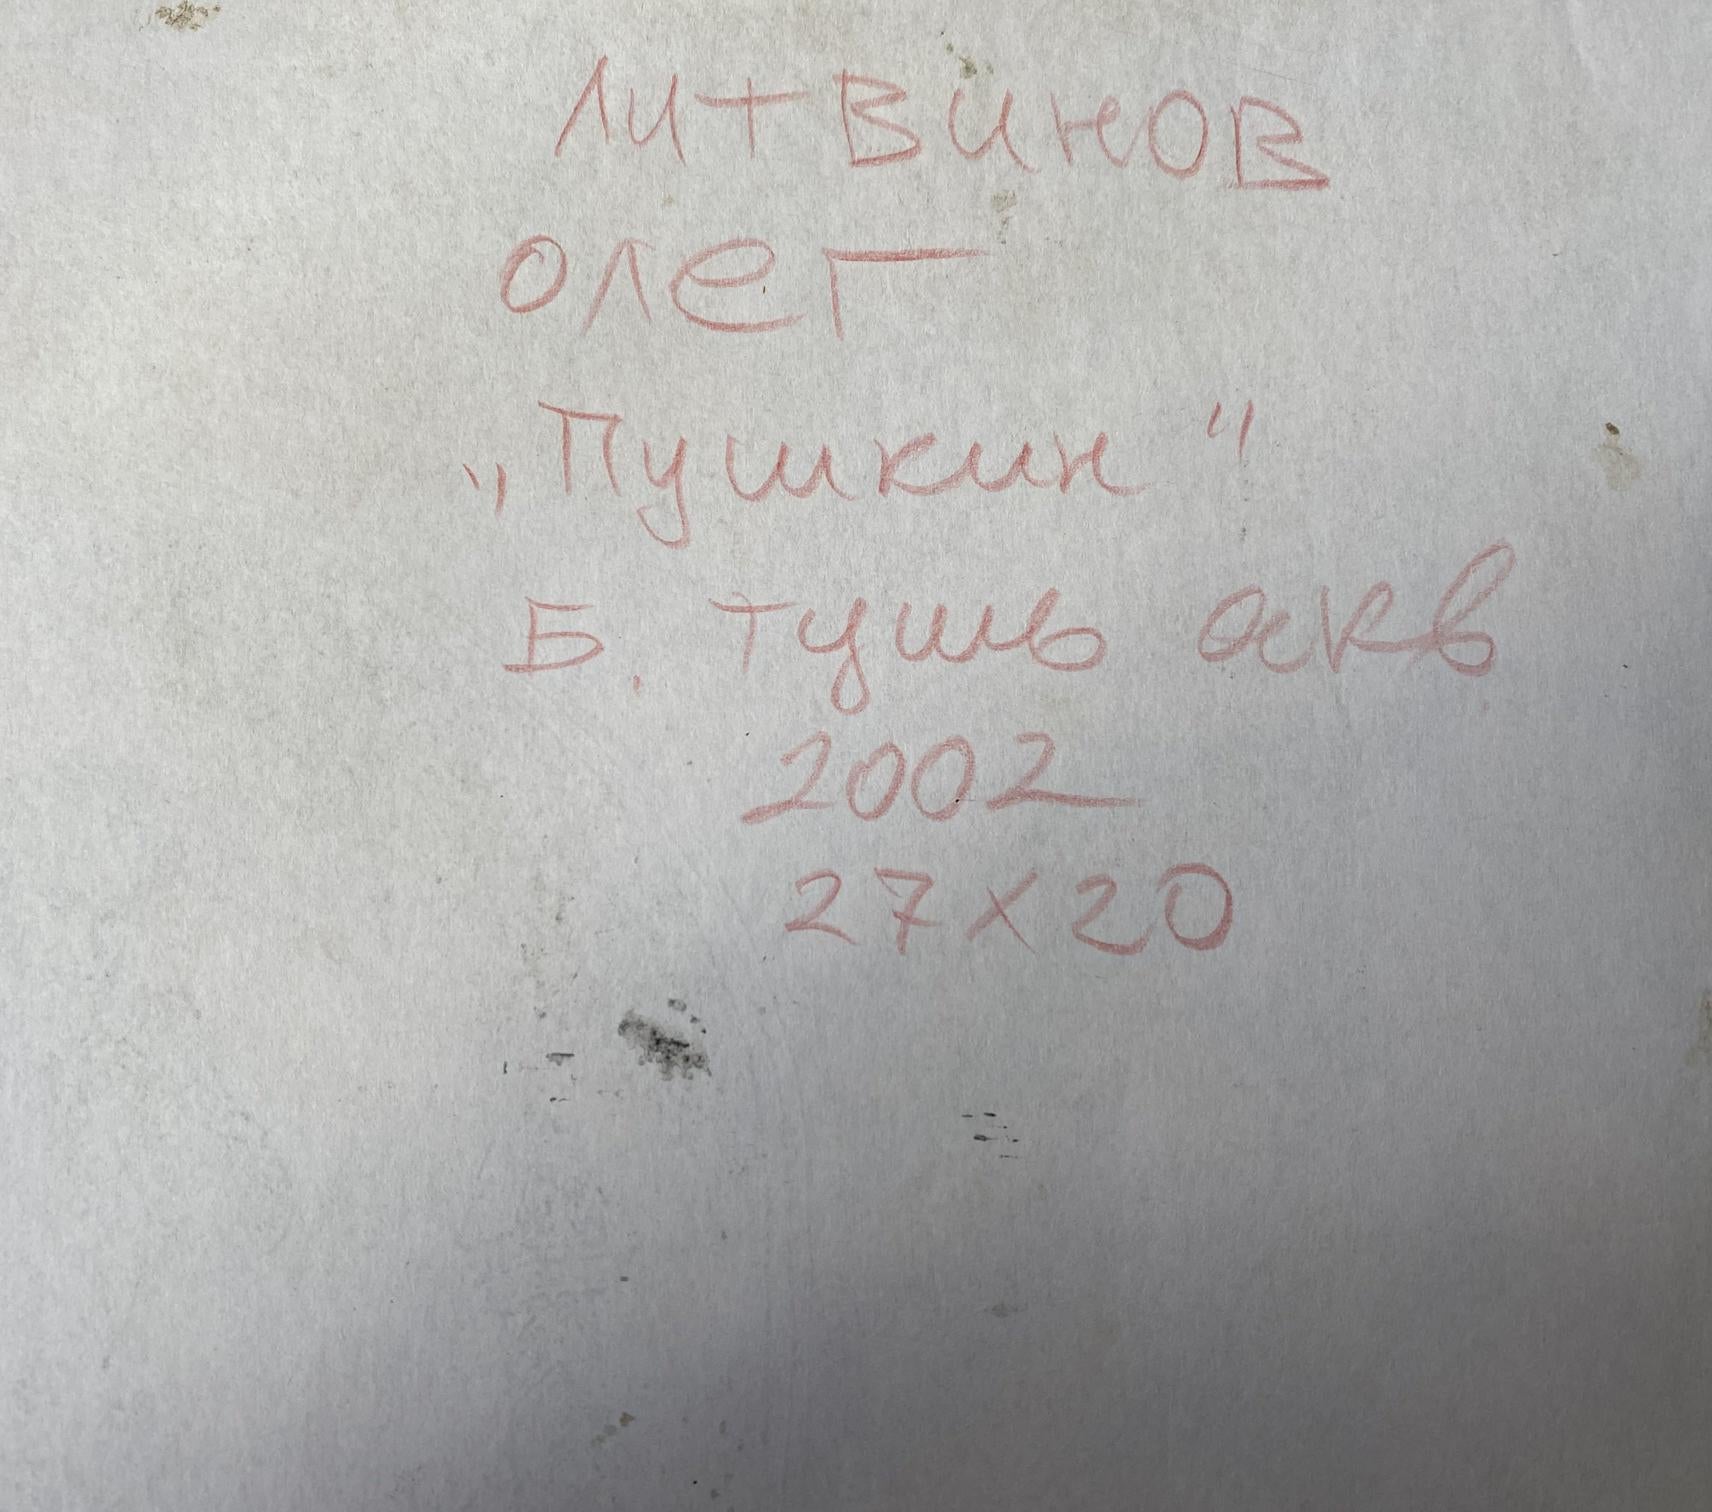 Литвинов
Олег
„Пушкин“
Б. тушь акв
2002
27×20